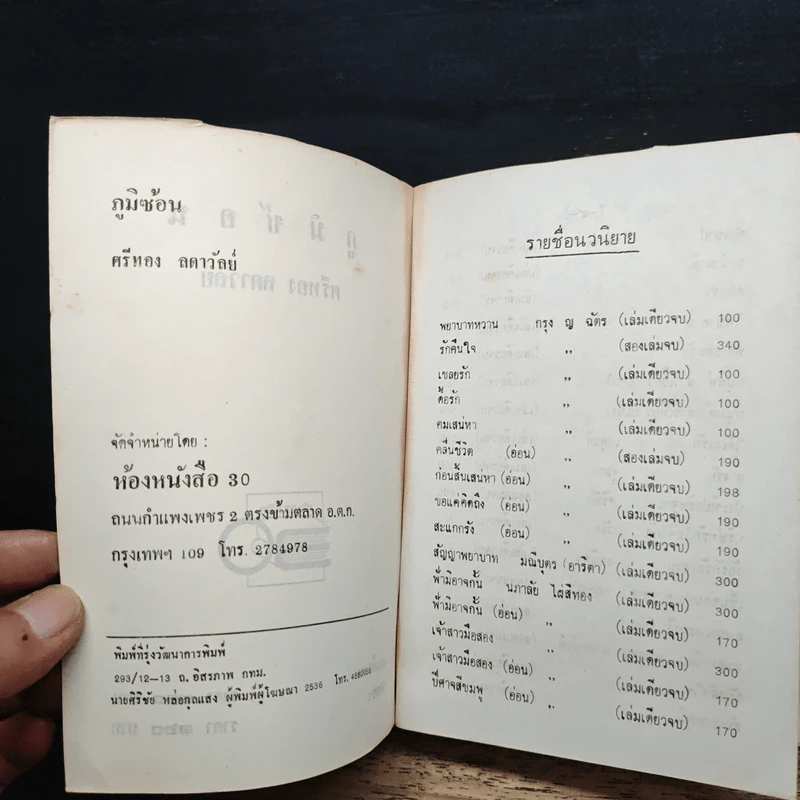 ภูมิซ้อน
ศรีทอง ลดาวัลย์
จัดจำหน่ายโดย :
ห้องหนังสือ 30
ถนนกำแพงเพชร 2 ตรงข้ามตลาด อ.ต.ก.
กรุงเทพฯ 109 โทร. 2784978
พิมพ์ที่รุ่งวัฒนาการพิมพ์
293/12-13 ถ.อิสรภาพ กทม.
นายศิริชัย หล่อกุลแสง ผู้พิมพ์ผู้โฆษณา 2536 โทร.
รายชื่อนวนิยาย
พยาบาทหวาน กรุง ญ ฉัตร (เล่มเดียวจบ) 100
รักคืนใจ ,, (สองเล่มจบ) 340
เชลยรัก ,, (เล่มเดียวจบ) 100
ดื้อรัก ,, (เล่มเดียวจบ) 100
คมเสน่หา ,, (เล่มเดียวจบ) 100
คลื่นชีวิต (อ่อน) ,, (สองเล่มจบ) 190
ก่อนสิ้นเสน่หา (อ่อน) ,, (เล่มเดียวจบ) 198
ขอแค่คิดถึง (อ่อน) ,, (เล่มเดียวจบ) 190
สะแกกรัง (อ่อน) ,, (เล่มเดียวจบ) 190
สัญญาพยาบาท มณีบุตร (อาริตา) (เล่มเดียวจบ) 300
ฟ้ามิอาจกั้น นภาลัย ไผ่สีทอง (เล่มเดียวจบ) 300
ฟ้ามิอาจกั้น (อ่อน) ,, (เล่มเดียวจบ) 170
เจ้าสาวมือสอง ,, (เล่มเดียวจบ) 300
เจ้าสาวมือสอง (อ่อน) ,, (เล่มเดียวจบ) 170
ปีศาจสีชมพู (อ่อน) ,, (เล่มเดียวจบ) 170